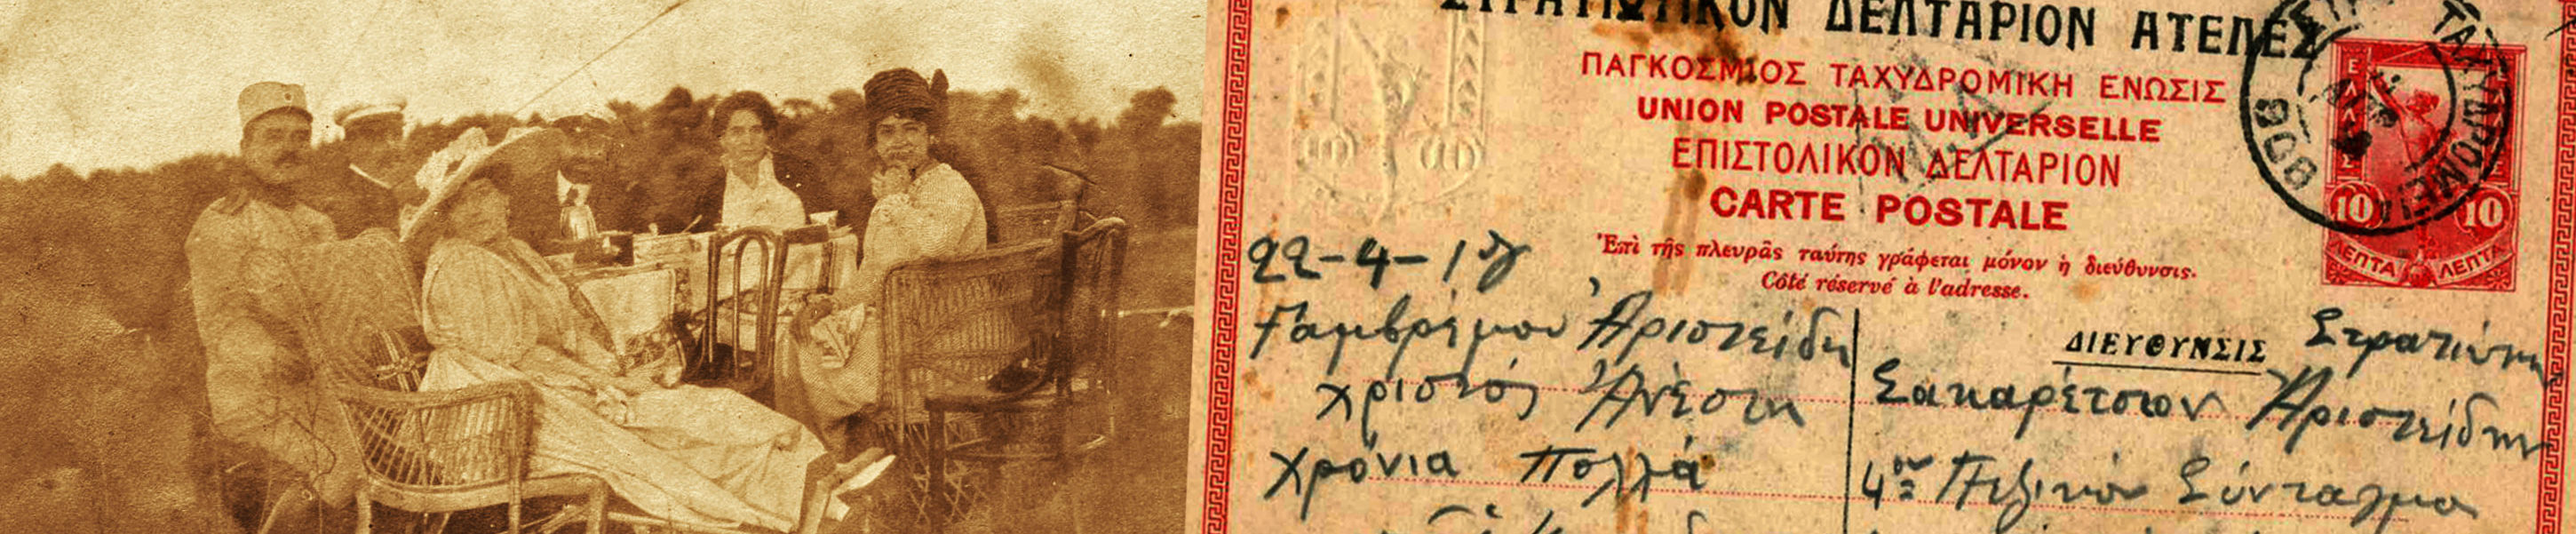 ΣΤΡΑΤΙΩΤΙΚΟΝ ΔΕΛΤΑΡΙΟΝ ΑΤΕΛΕΣ
ΠΑΓΚΟΣΜΙΟΣ ΤΑΧΥΔΡΟΜΙΚΗ ΕΝΩΣΙΣ
UNION POSTALE UNIVERSELLE
ΕΠΙΣΤΟΛΙΚΟΝ ΔΕΛΤΑΡΙΟΝ
CARTE POSTALE
Ἐπὶ τῆς πλευρᾶς ταύτης γράφεται μόνον ἡ διεύθυνσις.
Côté réservé à l'adresse.
ΕΛΛΑΣ
10 10
ΛΕΠΤΑ ΛΕΠΤΑ
ΤΑΧΥΔΡΟΜΕΙ
908
22-4-19
Γαμβρέ μου Ἀριστείδη
Χριστός Ἀνέστη
Χρόνια Πολλά
ΔΙΕΥΘΥΝΣΙΣ
Στρατιώτην
Σακαρέτσιον Ἀριστείδην
4ον Πεζικόν Σύνταγμα